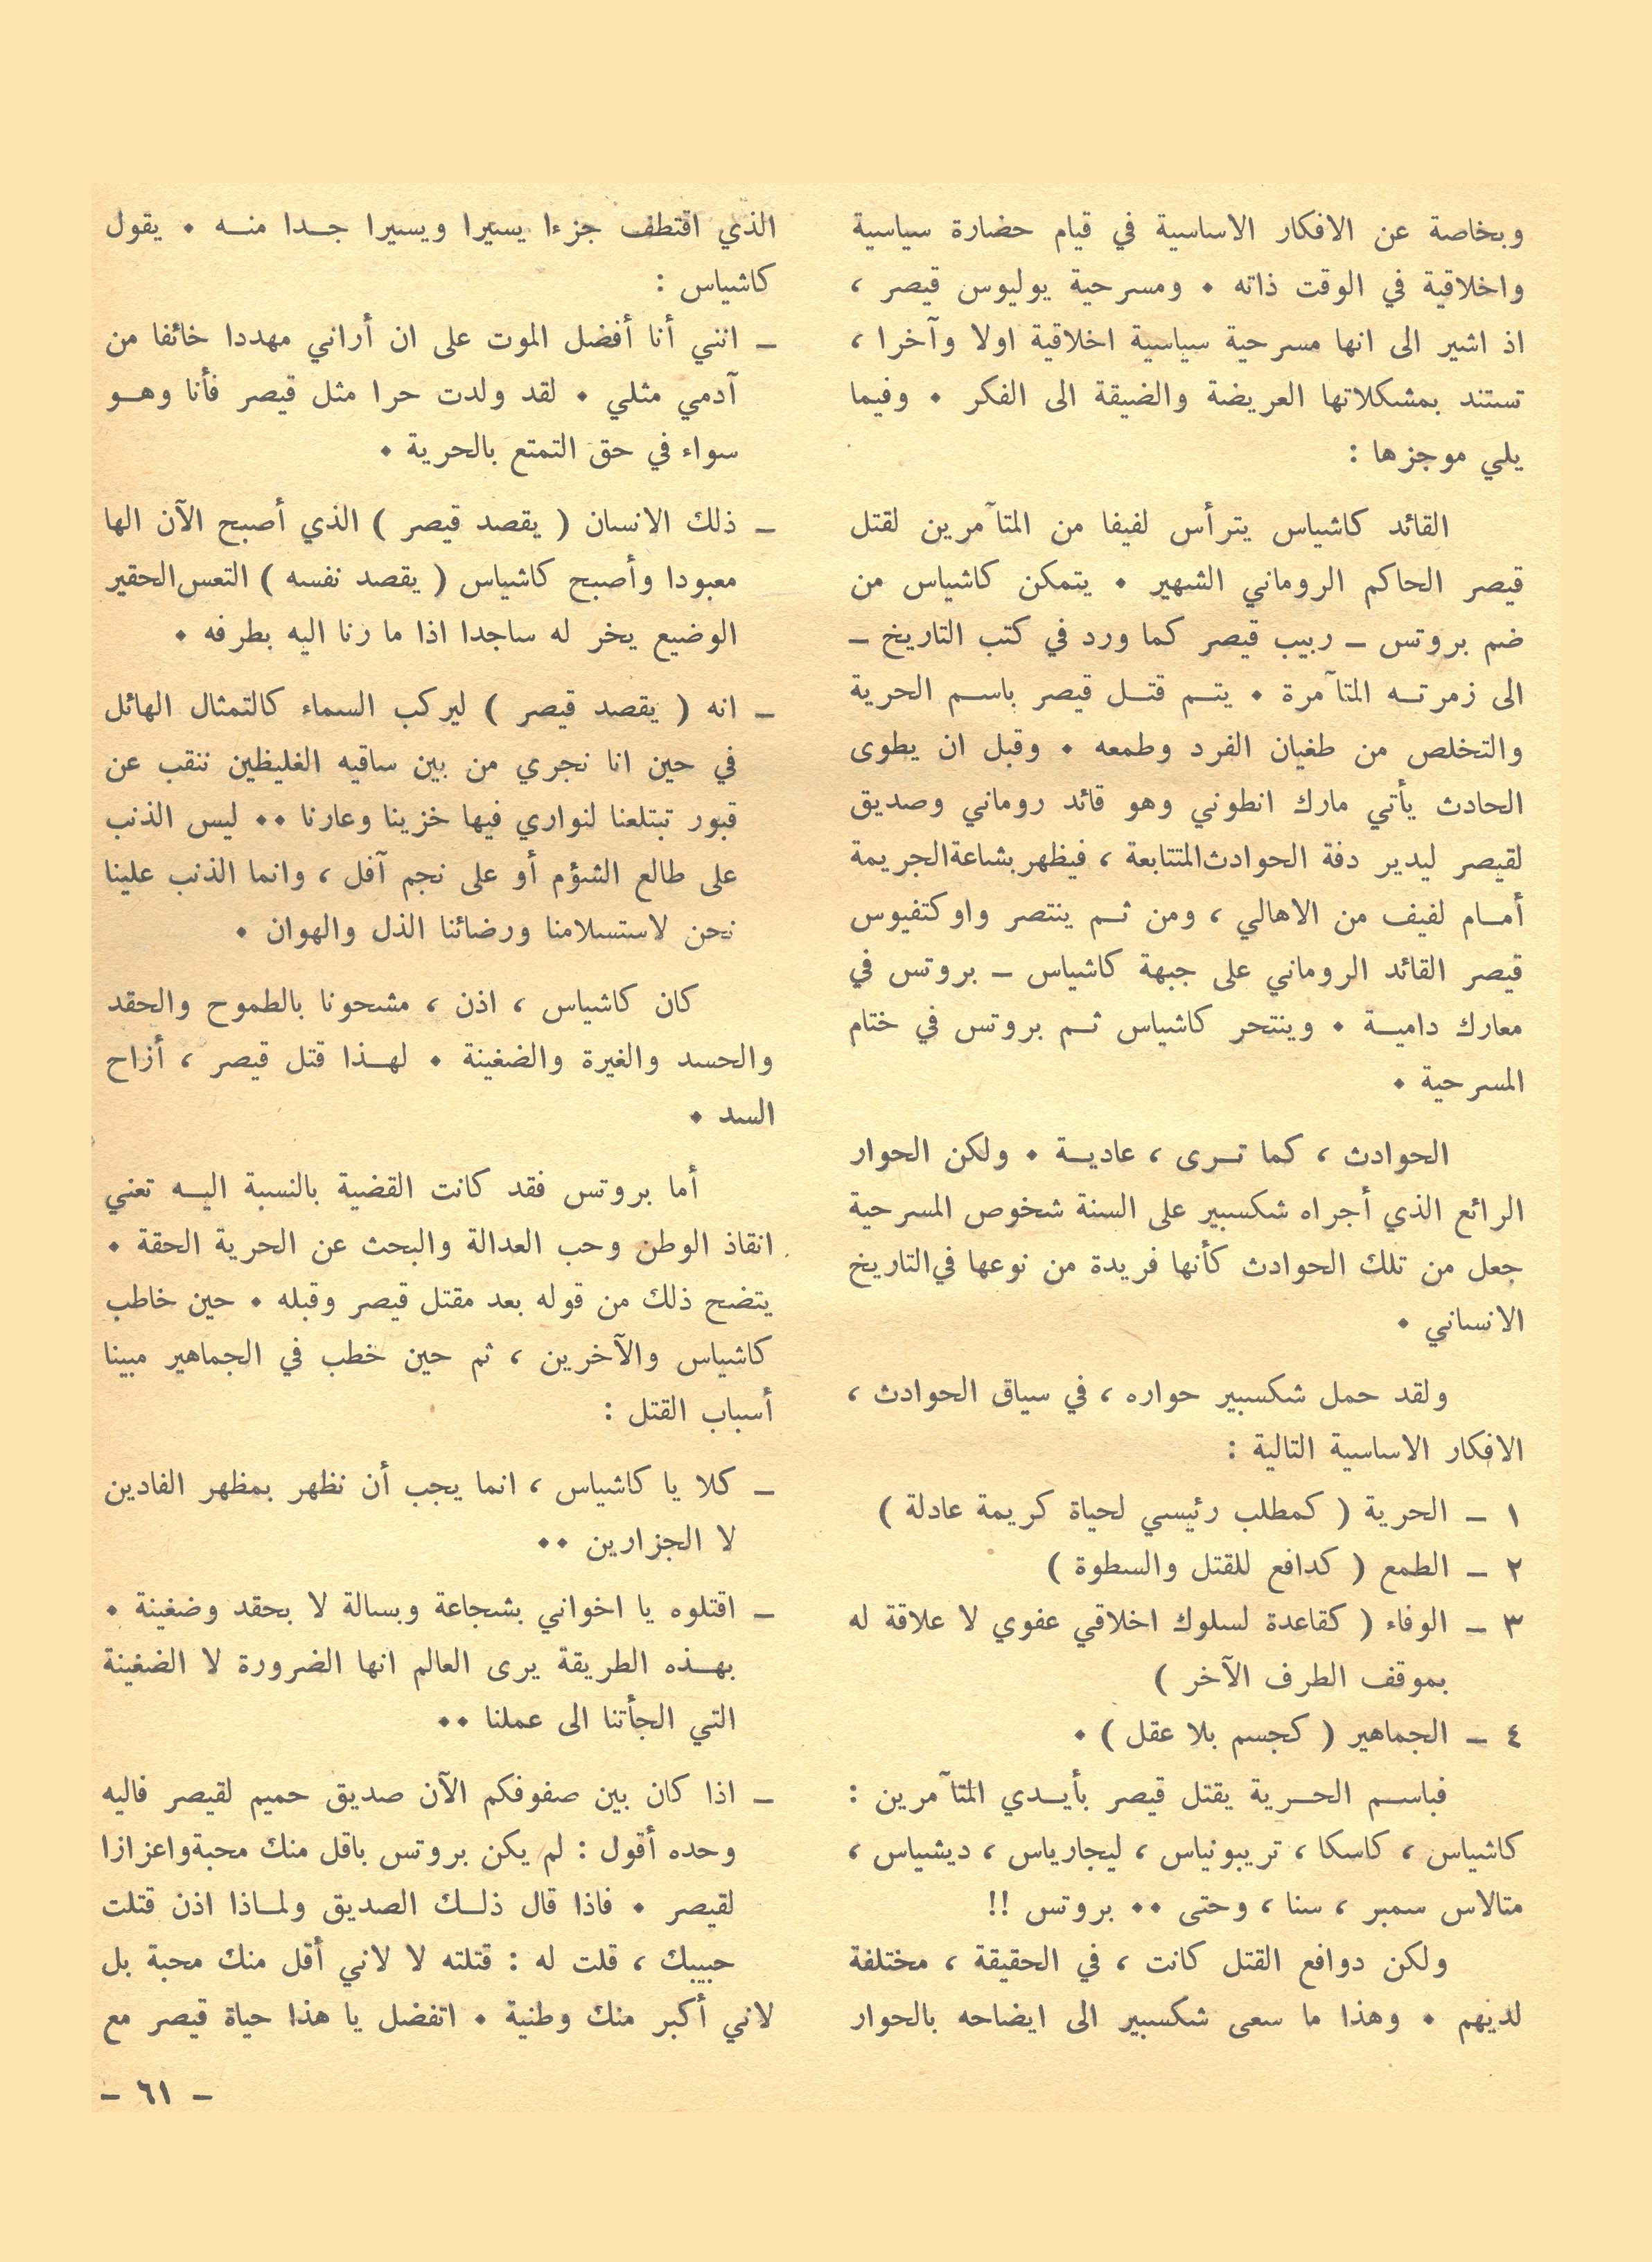 وبخاصة عن الافكار الاساسية في قيام حضارة سياسية
واخلاقية في الوقت ذاته ٠ ومسرحية يوليوس قيصر ،
اذ اشير الى انها مسرحية سياسية اخلاقية اولا وآخرا ،
تستند بمشكلاتها العريضة والضيقة الى الفكر ٠ وفيما
يلي موجزها :
القائد كاشياس يترأس لفيفا من المتآمرين لقتل
قيصر الحاكم الروماني الشهير ٠ يتمكن كاشياس من
ضم بروتس ــ ربيب قيصر كما ورد في كتب التاريخ ــ
الى زمرتـه المتآمرة ٠ يتـم قتـل قيصر باسـم الحرية
والتخلص من طغيان الفرد وطمعه ٠ وقبل ان يطوى
الحادث يأتي مارك انطوني وهو قائد روماني وصديق
لقيصر ليدير دفة الحوادث المتتابعة ، فيظهر بشاعة الجريمة
أمـام لفيف من الاهالي ، ومن ثـم ينتصر واوكتفيوس
قيصر القائد الروماني على جبهة كاشياس ــ بروتس في
معارك داميـة ٠ وينتحر كاشياس ثـم بروتس في ختام
المسرحية ٠
الحوادث ، كما تـرى ، عاديـة ٠ ولكن الحوار
الرائع الذي أجراه شكسبير على السنة شخوص المسرحية
جعل من تلك الحوادث كأنها فريدة من نوعها في التاريخ
الانساني ٠
ولقد حمل شكسبير حواره ، في سياق الحوادث ،
الافكار الاساسية التالية :
١ ــ الحرية ( كمطلب رئيسي لحياة كريمة عادلة )
٢ ــ الطمع ( كدافع للقتل والسطوة )
٣ ــ الوفاء ( كقاعدة لسلوك اخلاقي عفوي لا علاقة له
بموقف الطرف الآخر )
٤ ــ الجماهير ( كجسم بلا عقل ) ٠
فباسـم الحـرية يقتل قيصر بأيـدي المتآمرين :
كاشياس ، كاسكا ، تريبونياس ، ليجارياس ، ديشياس ،
متالاس سمبر ، سنا ، وحتى ٠٠ بروتس !!
ولكن دوافع القتل كانت ، في الحقيقة ، مختلفة
لديهم ٠ وهذا ما سعى شكسبير الى ايضاحه بالحوار
الذي اقتطف جزءا يسيرا ويسيرا جـدا منـه ٠ يقول
كاشياس :
ــ انني أنا أفضل الموت على ان أراني مهددا خائفا من
آدمي مثلي ٠ لقد ولدت حرا مثل قيصر فأنا وهـو
سواء في حق التمتع بالحرية ٠
ــ ذلك الانسان ( يقصد قيصر ) الذي أصبح الآن الها
معبودا وأصبح كاشياس ( يقصد نفسه ) التعس الحقير
الوضيع يخر له ساجدا اذا ما رنا اليه بطرفه ٠
ــ انه ( يقصد قيصر ) ليركب السماء كالتمثال الهائل
في حين انا نجري من بين ساقيه الغليظين ننقب عن
قبور تبتلعنا لنواري فيها خزينا وعارنا ٠٠ ليس الذنب
على طالع الشؤم أو على نجم آفل ، وانما الذنب علينا
نحن لاستسلامنا ورضائنا الذل والهوان ٠
كان كاشياس ، اذن ، مشحونا بالطموح والحقد
والحسد والغيرة والضغينة ٠ لهـذا قتل قيصر ، أزاح
السد ٠
أما بروتس فقد كانت القضية بالنسبة اليـه تعني
انقاذ الوطن وحب العدالة والبحث عن الحرية الحقة ٠
يتضح ذلك من قوله بعد مقتل قيصر وقبله ٠ حين خاطب
كاشياس والآخرين ، ثم حين خطب في الجماهير مبينا
أسباب القتل :
ــ كلا يا كاشياس ، انما يجب أن نظهر بمظهر الفادين
لا الجزارين ٠٠
ــ اقتلوه يا اخواني بشجاعة وبسالة لا بحقد وضغينة ٠
بهـذه الطريقة يرى العالم انها الضرورة لا الضغينة
التي الجأتنا الى عملنا ٠٠
ــ اذا كان بين صفوفكم الآن صديق حميم لقيصر فاليه
وحده أقول : لم يكن بروتس باقل منك محبة واعزازا
لقيصر ٠ فاذا قال ذلـك الصديق ولمـاذا اذن قتلت
حبيبك ، قلت له : قتلته لا لاني أقل منك محبة بل
لاني أكبر منك وطنية ٠ اتفضل يا هذا حياة قيصر مع
ــ ٦١ ــ